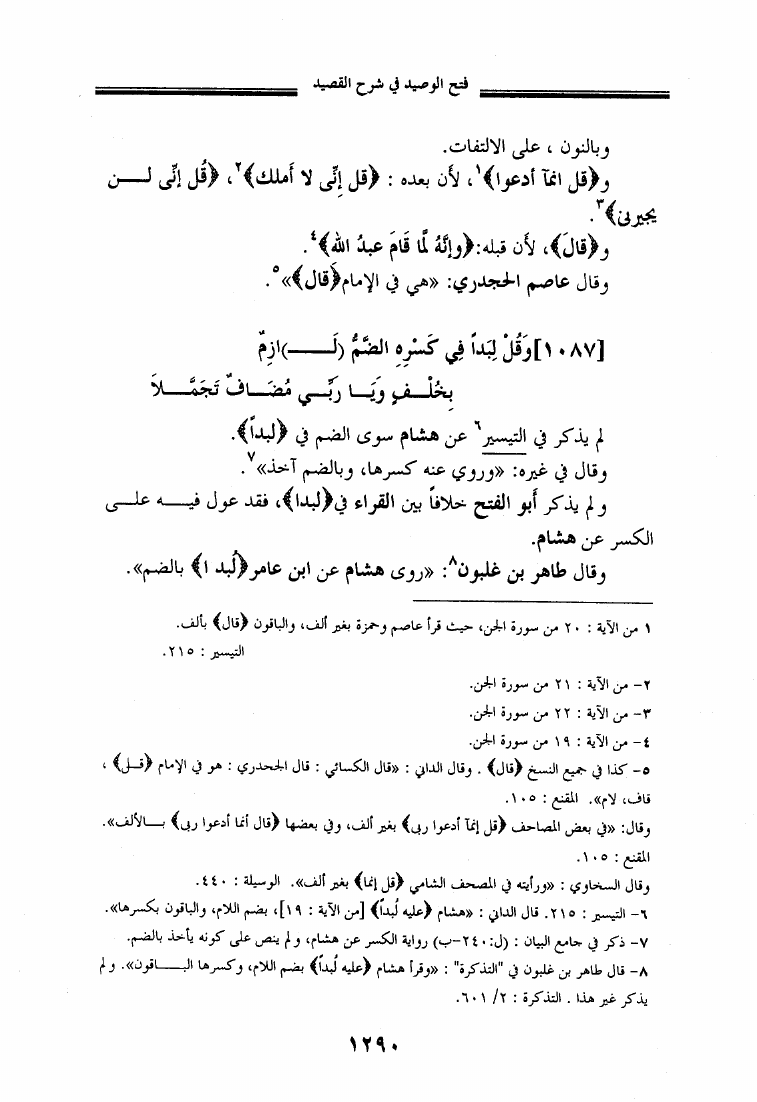 فتح الوصيد في شرح القصيد
وبالنون ، على الالتفات.
و﴿قل انمآ أدعوا﴾١، لأن بعده : ﴿قل إنِّى لا أملك﴾٢، ﴿قُل إنِّى لـــن
يجيرنى﴾٣.
و﴿قالَ﴾، لأن قبله:﴿وإنَّهُ لمَّا قَامَ عبدُ الله﴾٤.
وقال عاصم الجحدري: «هي في الإمام﴿قال﴾»٥.
[١٠٨٧]وَقُلْ لِبَداً فِي كَسْرِهِ الضَّمُّ (لَـــــ)ازِمٌ
بِخُلْـفٍ وَيَـا رَبِّـي مُضَـافٌ تَجَمَّـلاَ
لم يذكر في التيسير٦ عن هشام سوى الضم في ﴿لبداً﴾.
وقال في غيره: «وروي عنه كسرها، وبالضم آخذ»٧.
ولم يذكر أبو الفتح خلافاً بين القراء في﴿لبدا﴾، فقد عول فيـــه علـــى
الكسر عن هشام.
وقال طاهر بن غلبون٨: «روى هشام عن ابن عامر﴿لُبد ا﴾ بالضم».
١ من الآية : ٢٠ من سورة الجن، حيث قرأ عاصم وحمزة بغير ألف، والباقون ﴿قال﴾ بألف.
التيسير : ٢١٥.
٢- من الآية : ٢١ من سورة الجن.
٣- من الآية : ٢٢ من سورة الجن.
٤- من الآية : ١٩ من سورة الجن.
٥- كذا في جميع النسخ ﴿قال﴾ . وقال الداني : «قال الكسائي : قال الجحدري : هو في الإمام ﴿قـــل﴾ ،
قاف، لام». المقنع : ١٠٥.
وقال: «في بعض المصاحف ﴿قل إنمآ أدعوا ربى﴾ بغير ألف، وفي بعضها ﴿قال أنما أدعوا ربى﴾ بـــالألف».
المقنع : ١٠٥.
وقال السخاوي : «ورأيته في المصحف الشامي ﴿قل إنما﴾ بغير ألف». الوسيلة : ٤٤٠.
٦- التيسير : ٢١٥. قال الداني : «هشام ﴿عليه لُبداً﴾ [من الآية : ١٩]، بضم اللام، والباقون بكسرها».
٧- ذكر في جامع البيان : (ل:٢٤٠-ب) رواية الكسر عن هشام، ولم ينص على كونه يأخذ بالضم.
٨- قال طاهر بن غلبون في "التذكرة" : «وقرأ هشام ﴿عليه لُبداً﴾ بضم اللام، وكسرها البـــاقون». ولم
يذكر غير هذا . التذكرة : ٢/ ٦٠١.
١٢٩٠